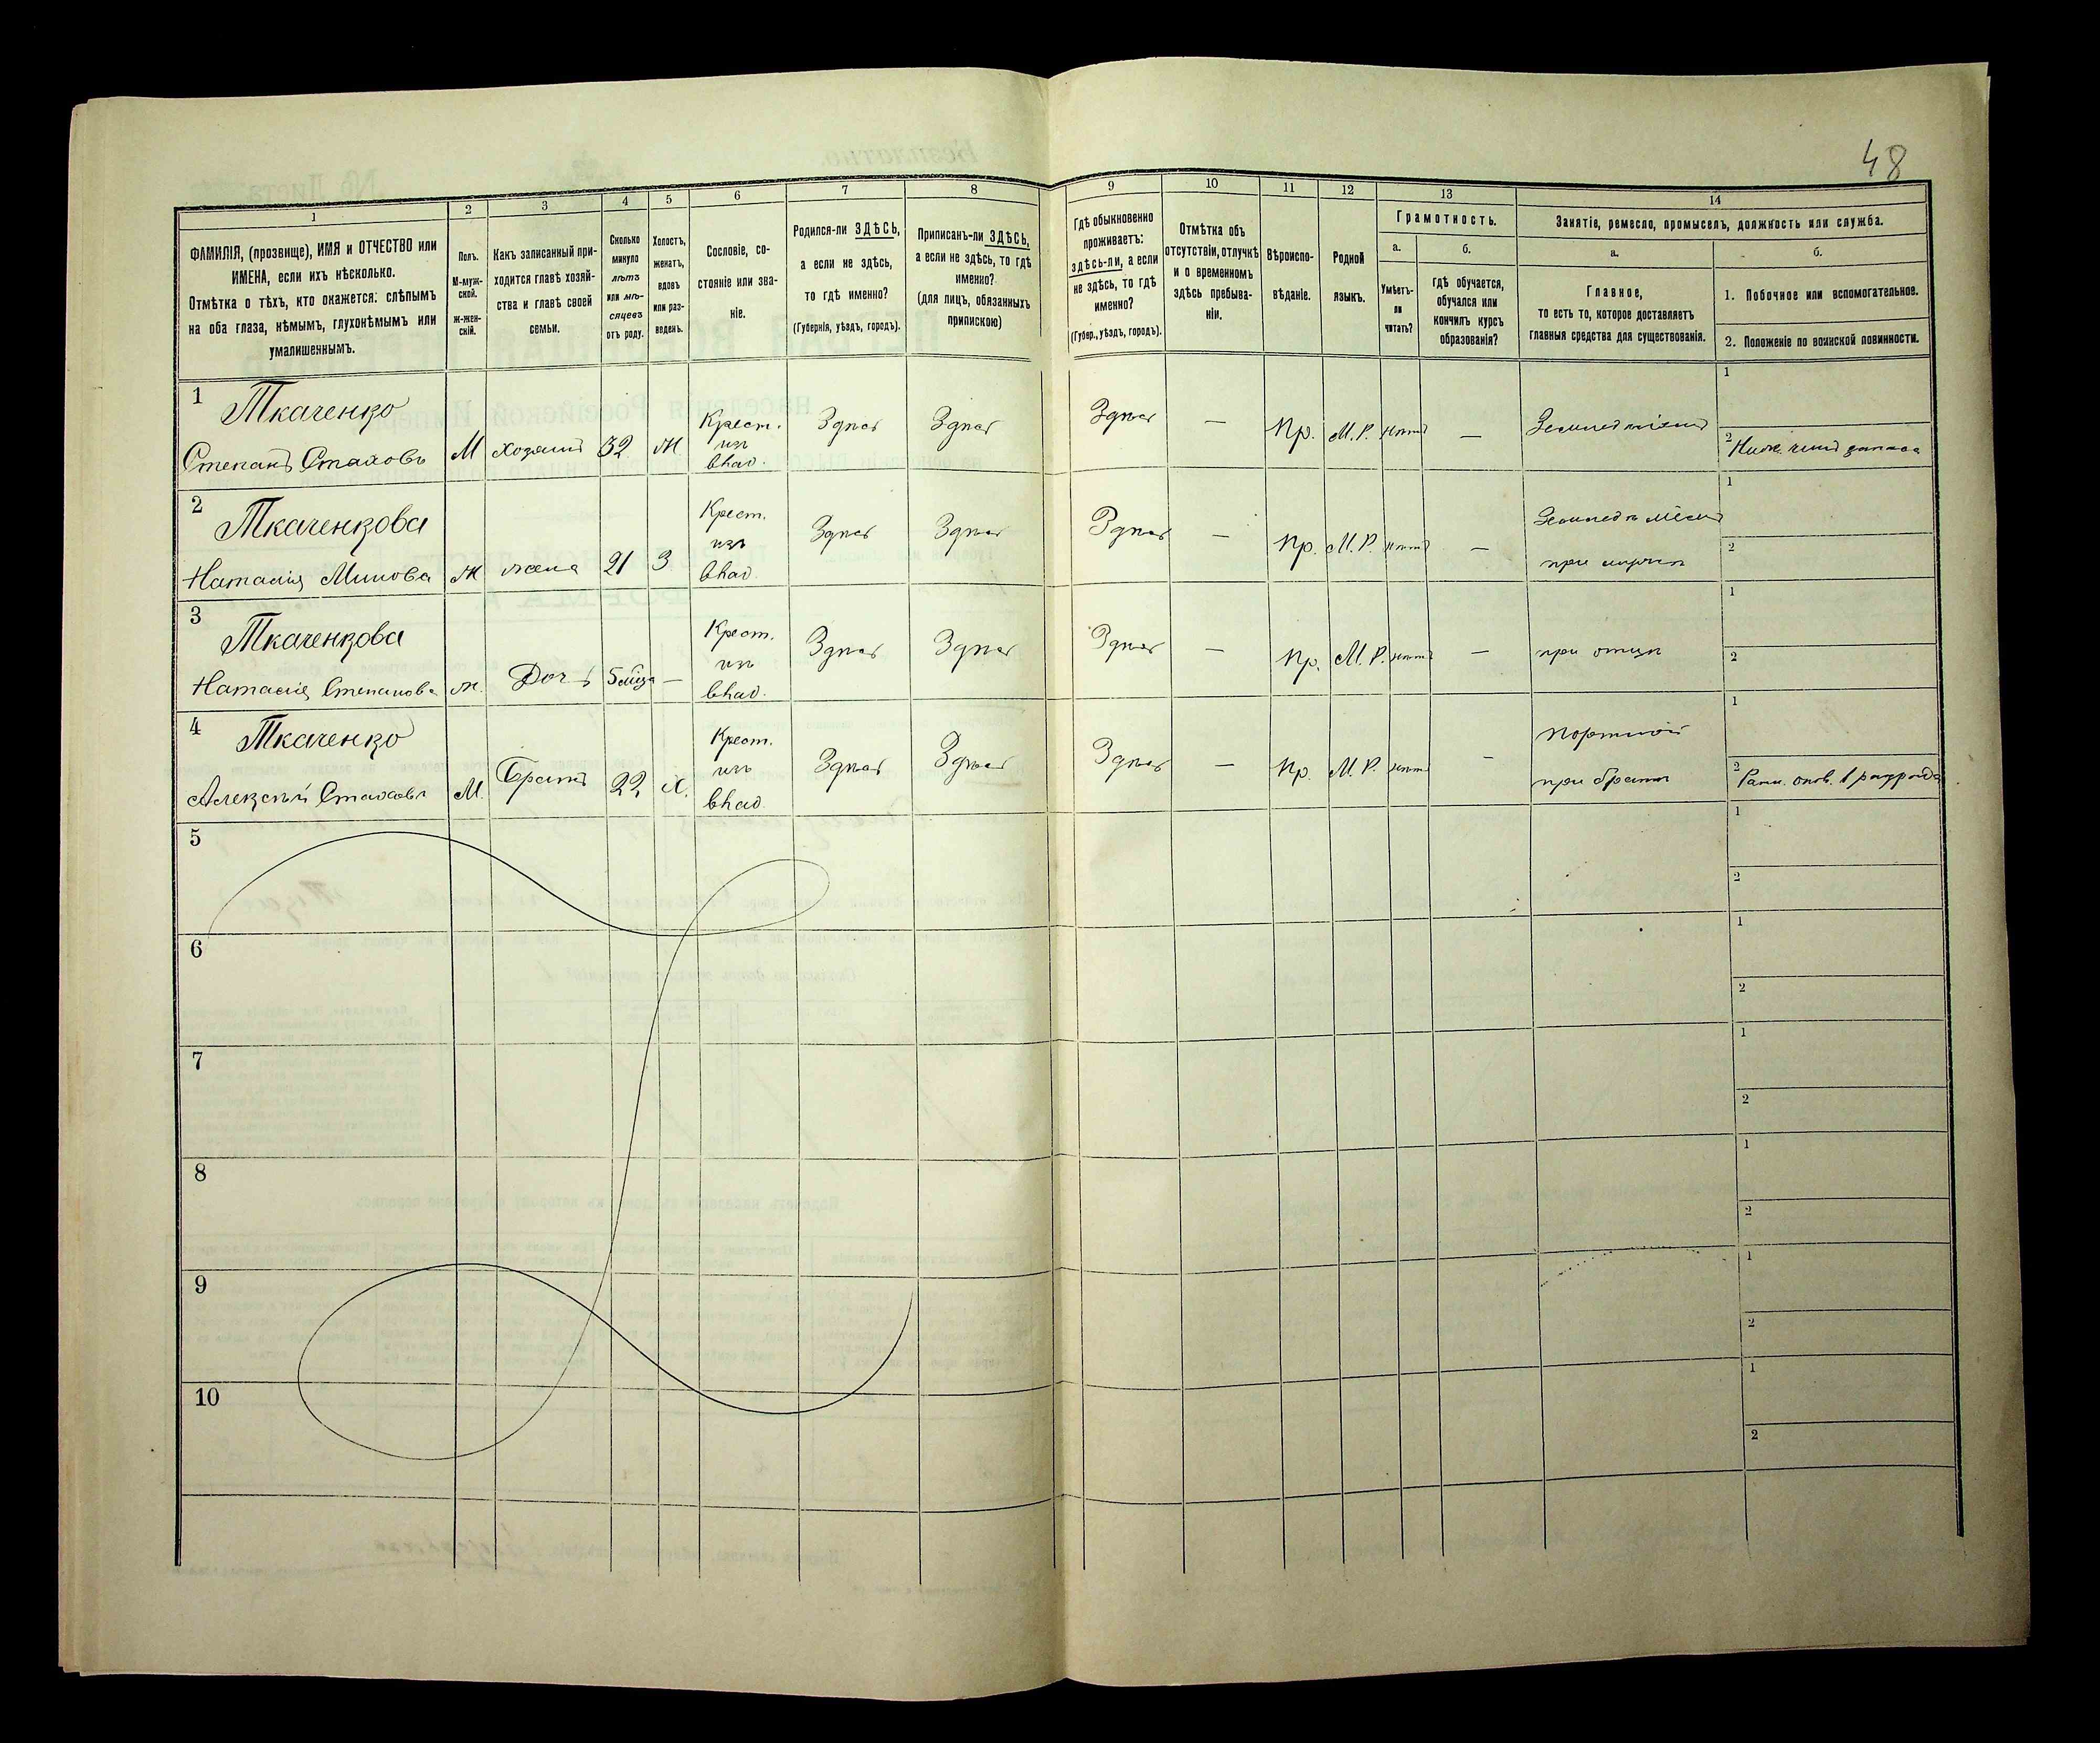 48
1
2
3
4
5
6
7
8
9
10
11
12
13
14
ФАМИЛІЯ, (прозвище), ИМЯ и ОТЧЕСТВО или
ИМЕНА, если ихъ нѣсколько.
Отмѣтка о тѣхъ, кто окажется: слѣпымъ
на оба глаза, нѣмымъ, глухонѣмымъ или
умалишеннымъ.
Полъ.
М-муж-
ской.
Ж-жен-
скій.
Какъ записанный при-
ходится главѣ хозяй-
ства и главѣ своей
семьи.
Сколько
минуло
лѣтъ
или мѣ-
сяцевъ
отъ роду.
Холостъ,
женатъ,
вдовъ
или раз-
веденъ.
Сословіе, со-
стояніе или зва-
ніе.
Родился-ли ЗДѢСЬ,
а если не здѣсь,
то гдѣ именно?
(Губернія, уѣздъ, городъ).
Приписанъ-ли ЗДѢСЬ,
а если не здѣсь, то гдѣ
именно?
(для лицъ, обязанныхъ
припискою)
Гдѣ обыкновенно
проживаетъ:
здѣсь-ли, а если
не здѣсь, то гдѣ
именно?
(Губер., уѣздъ, городъ).
Отмѣтка объ
отсутствіи, отлучкѣ
и о временномъ
здѣсь пребыва-
ніи.
Вѣроиспо-
вѣданіе.
Родной
языкъ.
Грамотность.
а.
Умѣетъ-
ли
читать?
б.
гдѣ обучается,
обучался или
кончилъ курсъ
образованія?
Занятіе, ремесло, промыселъ, должность или служба.
а.
Главное,
то есть то, которое доставляетъ
главныя средства для существованія.
б.
1. Побочное или вспомогательное.
2. Положеніе по воинской повинности.
1
Ткаченко
Степанъ Стаховъ
М
хозяинъ
32
Ж
Крест.
изъ
влад.
Здѣсь
Здѣсь
Здѣсь
—
Пр.
М. Р.
нѣтъ
—
Земледѣліемъ
1
2
Ниж. чинъ запаса
2
Ткаченкова
Наталія
Ж
жена
21
З
Крест.
изъ
влад.
Здѣсь
Здѣсь
Здѣсь
—
Пр.
М. Р.
нѣтъ
—
при мужѣ
1
2
3
Ткаченкова
Наталія Степанова
ж.
Дочь
5
—
Крест.
изъ
влад.
Здѣсь
Здѣсь
Здѣсь
—
Пр.
М. Р.
нѣтъ
—
при отцѣ
1
2
4
Ткаченко
Алексѣй Стаховъ
М.
Братъ
22
Х.
Крест.
изъ
влад.
Здѣсь
Здѣсь
Здѣсь
—
Пр.
М. Р.
нѣтъ
—
портной
при братѣ
1
2
Ратн. опол. 1 разряда
5
1
2
6
1
2
7
1
2
8
1
2
9
1
2
10
1
2